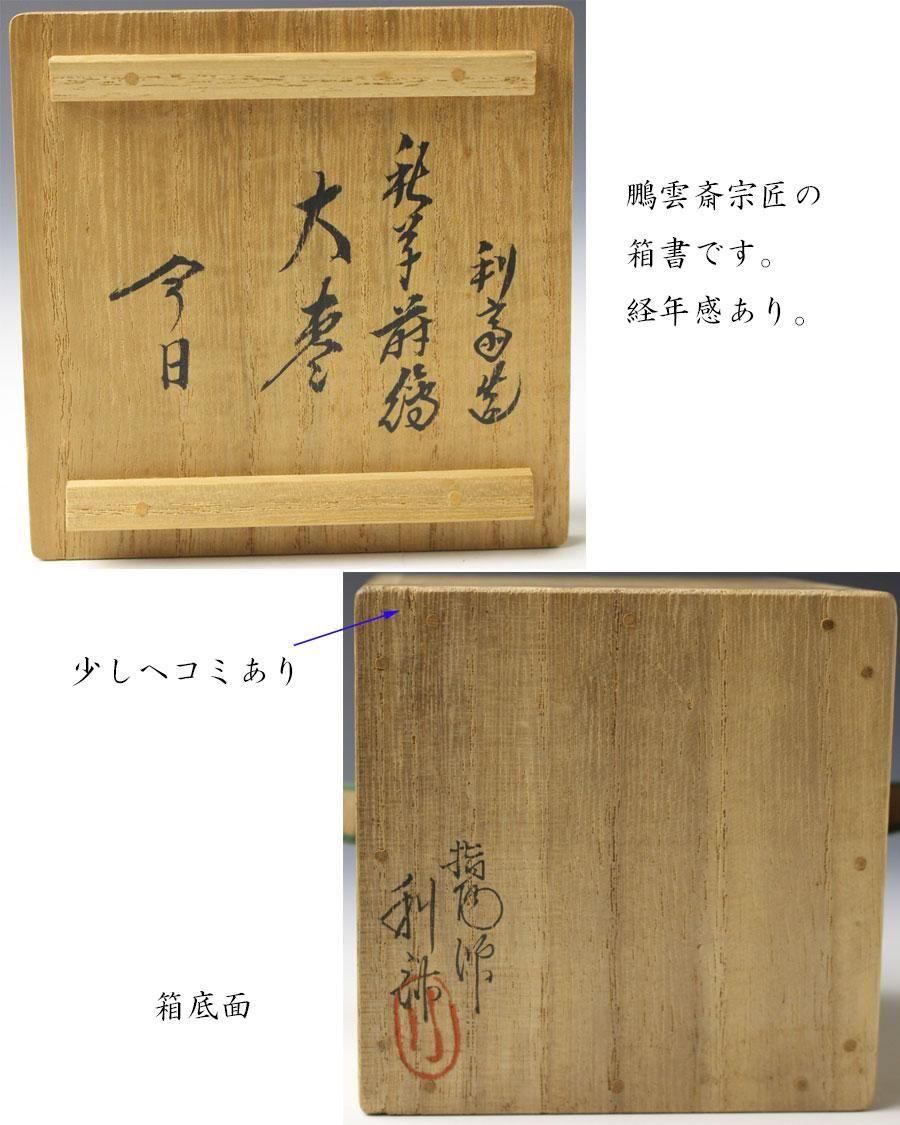 利斎造
秋草蒔絵
大棗
今日
鵬雲斎宗匠の
箱書です。
経年感あり。
少しヘコミあり
指物師
利斎
箱底面